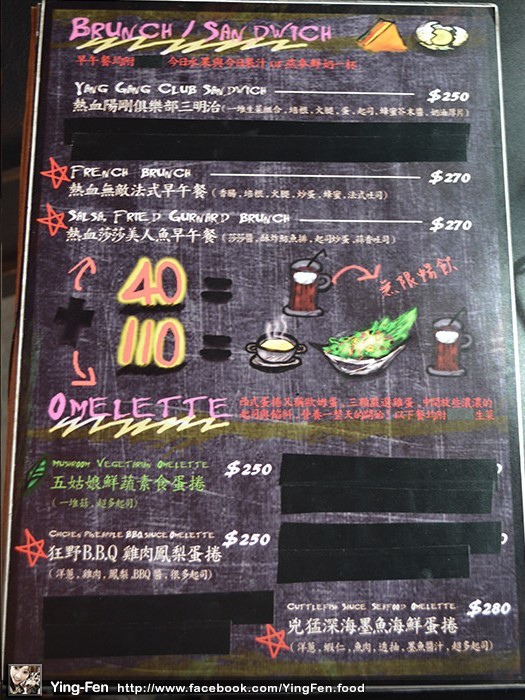 BRUNCH / SANDWICH
早午餐均附 今日水果與今日果汁 or 低卡鮮奶一杯
YANG GANG CLUB SANDWICH $250
熱血陽剛俱樂部三明治(一堆生菜組合、培根、火腿、蛋、起司、蜂蜜芥末醬、奶油厚片)
FRENCH BRUNCH $270
熱血無敵法式早午餐(香腸、培根、火腿、炒蛋、蜂蜜、法式吐司)
SALSA FRIED GURNARD BRUNCH $270
熱血莎莎美人魚早午餐(莎莎醬、酥炸魴魚排、起司炒蛋、蒜香吐司)
+ 40 =
無限暢飲
110 =
OMELETTE
西式蛋捲又稱歐姆蛋,三顆嚴選雞蛋,中間放些濃濃的
起司與餡料,營養一整天的開始!以下餐均附 生菜
MUSHROOM VEGETARIAN OMELETTE $250
五姑娘鮮蔬素食蛋捲
(一堆菇、超多起司)
CHICKEN PINEAPPLE BBQ SAUCE OMELETTE $250
狂野B.B.Q 雞肉鳳梨蛋捲
(洋蔥、雞肉、鳳梨、BBQ醬、很多起司)
CUTTLEFISH SAUCE SEAFOOD OMELETTE $280
兇猛深海墨魚海鮮蛋捲
(洋蔥、蝦仁、魚肉、透抽、墨魚醬汁、超多起司)
Ying-Fen http://www.facebook.com/YingFen.food